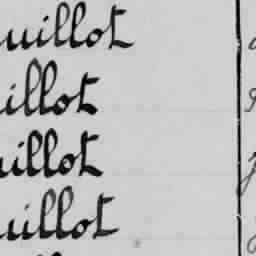 uillot
illot
uillot
uillot